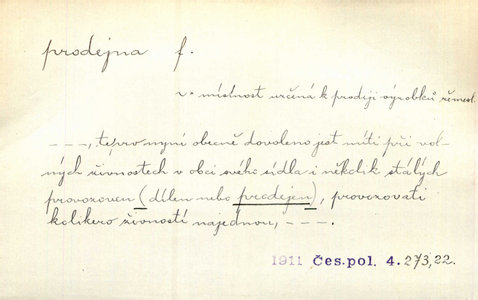 prodejna f.
v. místnost určená k prodeji výrobků řemesl.
---, teprv nyní obecně dovoleno jest míti při vol-
ných živnostech v obci svého sídla i několik stálých
provozoven (dílen nebo prodejen), provozovati
kolikero živností najednou, ---.
1911 Čes. pol. 4. 273, 22.